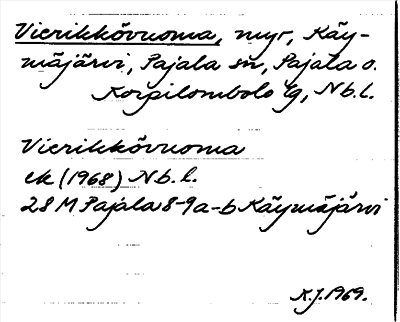 Vierikkövuoma, myr, Käy-
mäjärvi, Pajala sn, Pajala o.
Korpilombolo tg, Nb.l.
Vierikkövuoma
ek (1968) Nb.l.
28 M Pajala 8-9a-b Käymäjärvi
K.J. 1969.